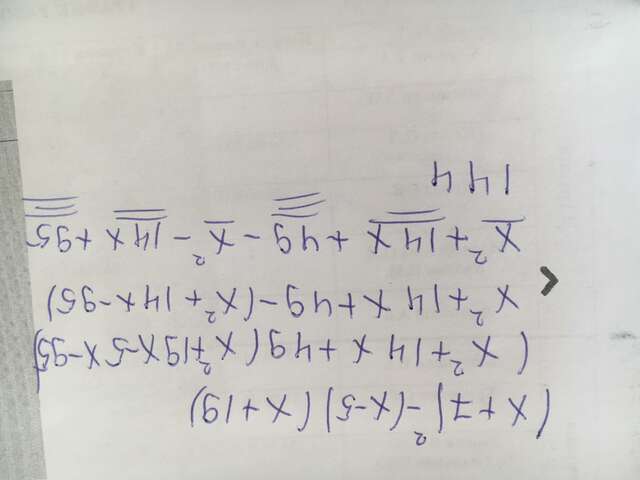 (x+7)²-(x-5)(x+19)
(x²+14x+49(x²+19x-5x-95)
x²+14x+49-(x²+14x-95)
x²+14x+49-x²-14x+95
144